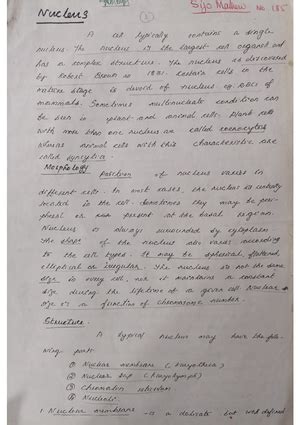 Sijo Mathew No. 185
Nucleus
A cell typically contains a single
nucleus. The nucleus is the largest cell organel and
has a complex structure. The nucleus is discovered
by Robert Brown in 1831. Certain cells in the
mature stage is devoid of nucleus eg. RBCs of
mammals. Sometimes multinucleate condition can
be seen in plant and animal cells. Plant cells
with more than one nucleus are called coenocytes
whereas animal cells with this characteristic are
called syncytia.
Morphology
Position of nucleus varies in
different cells. In most cases, the nucleus is centrally
located in the cell. Sometimes they may be peri-
pheral or present at the basal region.
Nucleus is always surrounded by cytoplasm
The shape of the nucleus also varies according
to the cell types. It may be spherical, flattened,
elliptical or irregular. The nucleus is not the same
size in every cell, it maintains a constant
size during the lifetime of a given cell. Nuclear
size is a function of chromosome number.
Structure
A typical nucleus may have the follo-
wing parts
① Nuclear membrane (karyotheca)
② Nuclear sap (karyolymph)
③ Chromatin reticulum
④ Nucleoli
1. Nuclear membrane - is a delicate but well defined